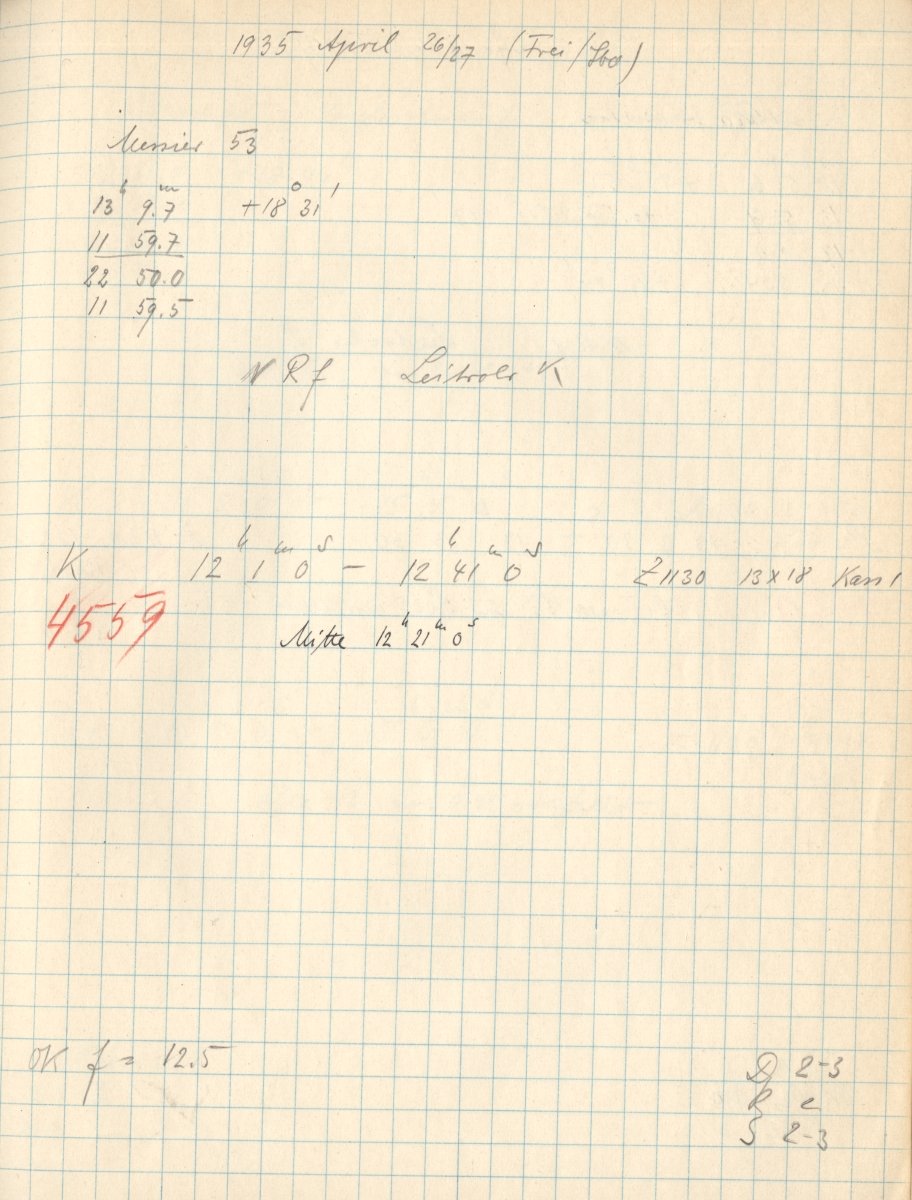 1935 April 26/27 (Frei/Sbd)
Messier 53
13h 9.m7 +18° 31'
11 59.7
22 50.0
11 59.5
N R f Leitrohr K
K 12h 1m 0s – 12h 41m 0s Z 1130 13x18 Kass 1
4559 Mitte 12h 21m 0s
OK f = 12.5
D 2-3
R 2
S 2-3